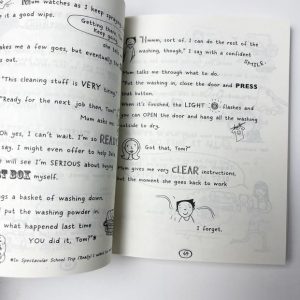 Mum watches as I keep sprayin
it a good wipe.
Getting there...
Keep going
she tells
akes me a few goes, but eventually the
s out.
"This cleaning stuff is VERY
"Ready for the next job then, Tom?"
Mum asks me.
Oh yes, I can't wait. I'm so READY
say. I might even offer to help
will see I'm SERIOUS about buying
BOX myself.
gs a basket of washing down.
put the washing powder in
what happened last time
YOU did it, Tom?"*
*In Spectacular School Trip (Really)
"Hmmm, sort of. I can do the rest of the
washing, though," I say with a confident
Mum talks me through what to do.
Put the washing in, close the door and PRESS
that button.
When it's finished, the LIGHT flashes and
you can OPEN the door and hang all the washing
outside to dry.
Got that, Tom?"
Mum gives me very CLEAR instructions,
but the moment she goes back to work
I forget.
69